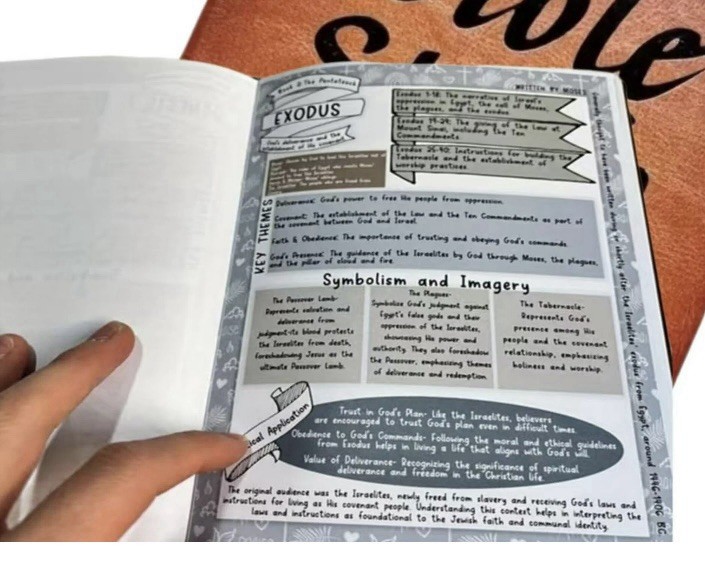 Book 2: The Pentateuch
EXODUS
God's deliverance and the
establishment of His covenant
WRITTEN BY MOSES
Exodus 1-18: The narrative of Israel's
oppression in Egypt, the call of Moses,
the plagues, and the exodus
Exodus 19-24: The giving of the Law at
Mount Sinai, including the Ten
Commandments.
Exodus 25-40: Instructions for building the
Tabernacle and the establishment of
worship practices.
KEY THEMES
Deliverance: God's power to free His people from oppression.
Covenant: The establishment of the Law and the Ten Commandments as part of
the covenant between God and Israel.
Faith & Obedience: The importance of trusting and obeying God's commands.
God's Presence: The guidance of the Israelites by God through Moses, the plagues,
and the pillar of cloud and fire.
Symbolism and Imagery
The Passover Lamb-
Represents salvation and
deliverance from
judgment-its blood protects
the Israelites from death,
foreshadowing Jesus as the
ultimate Passover Lamb.
The Plagues-
Symbolize God's judgment against
Egypt's false gods and their
oppression of the Israelites,
showcasing His power and
authority. They also foreshadow
the Passover, emphasizing themes
of deliverance and redemption.
The Tabernacle-
Represents God's
presence among His
people and the covenant
relationship, emphasizing
holiness and worship.
ical Application
Trust in God's Plan- Like the Israelites, believers
are encouraged to trust God's plan even in difficult times.
Obedience to God's Commands- Following the moral and ethical guidelines
from Exodus helps in living a life that aligns with God's will.
Value of Deliverance- Recognizing the significance of spiritual
deliverance and freedom in the Christian life.
The original audience was the Israelites, newly freed from slavery and receiving God's laws and
instructions for living as His covenant people. Understanding this context helps in interpreting the
laws and instructions as foundational to the Jewish faith and communal identity.
Commonly thought to have been written during or shortly after the Israelites' exodus from Egypt, around 1446-1406 BC